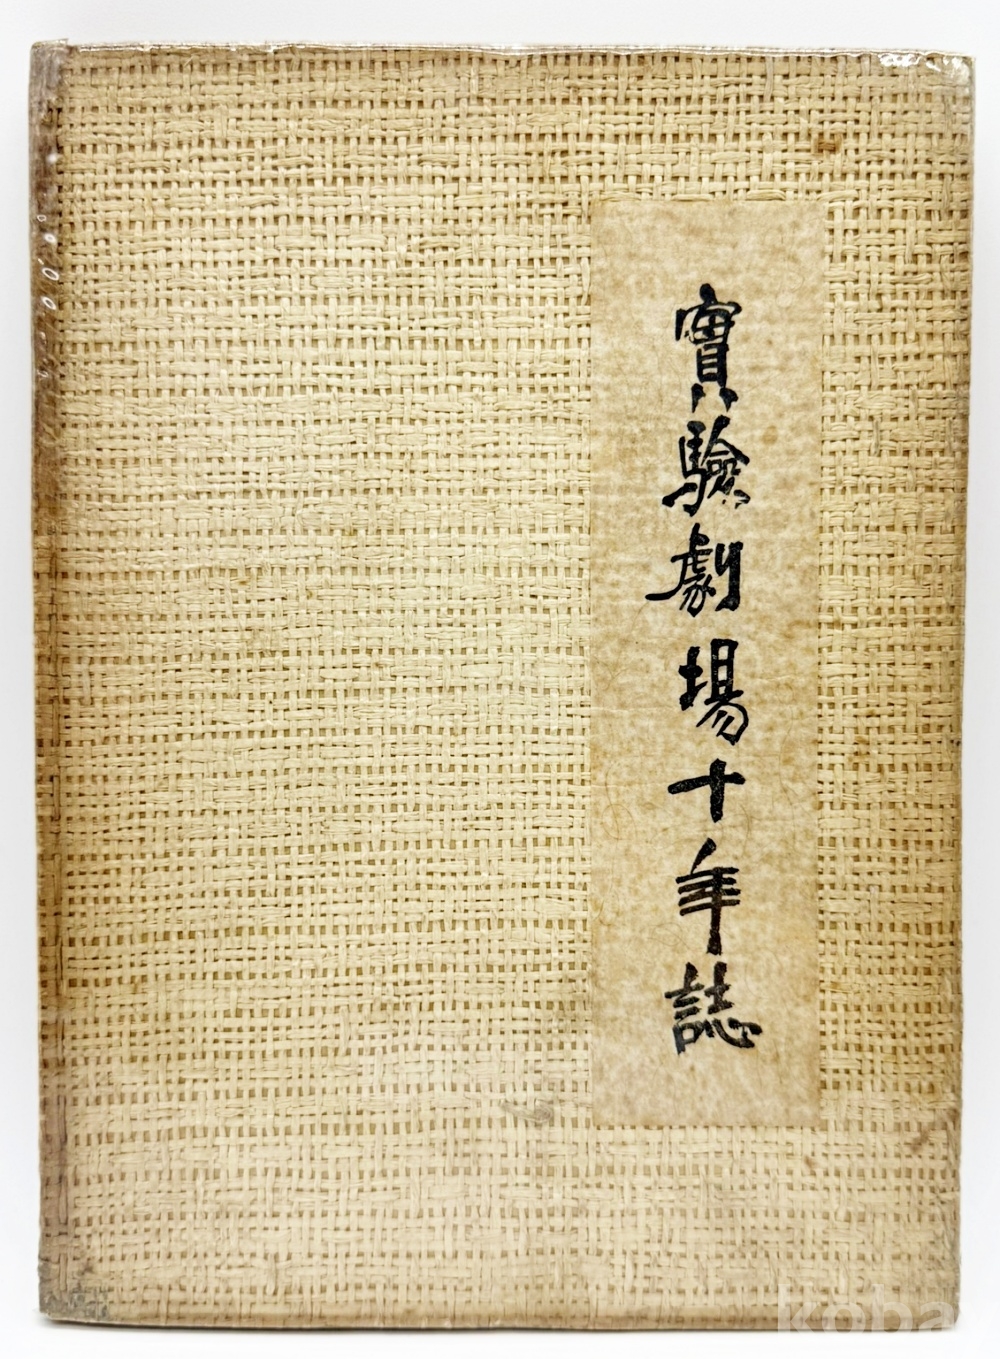 實驗劇場十年誌
koba